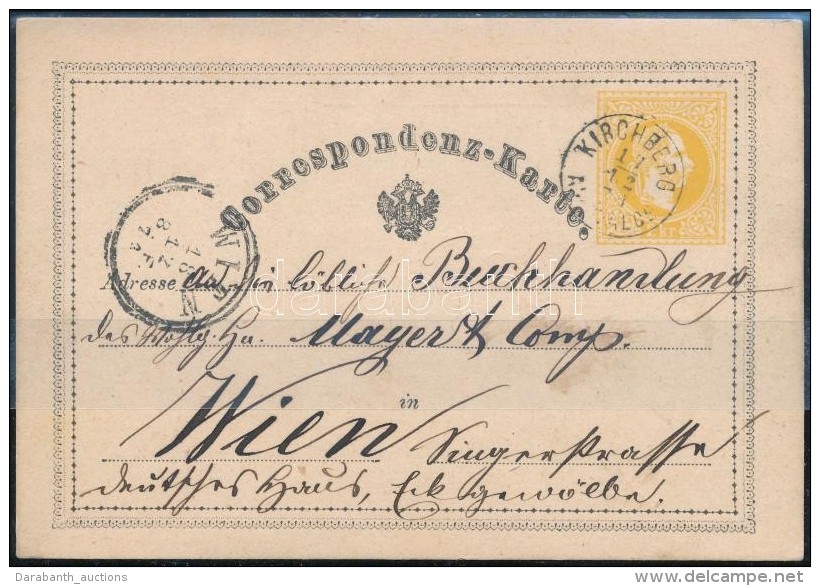 Correspondenz-Karte.
KIRCHBERG
17
12
WIEN
Adresse An die löbliche Buchhandlung
des Mayer & Comp.
in
Wien Singerstrasse
deutsches Haus, Eckgewölbe.
databanth
Darabanth_auctions
delcampe.net